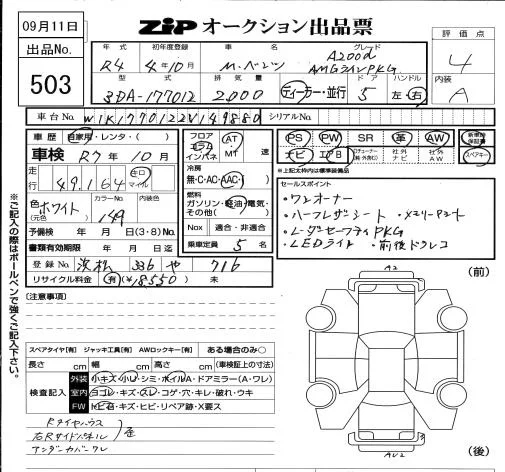 09月11日
ZIP オークション出品票
評価点
4
出品No.
503
年式 初年度登録 車名 グレード
R4 4年10月 M.ベンツ A200d AMGラインPKG
型式 排気量 ドア ハンドル
3DA-177012 2,000 ディーラー・並行 5 左・右
内装
A
車台No. W1K1770122V149880 シリアルNo.
車歴 自家用・レンタ・( )
車検 R7年10月
走行 49,164 キロ マイル
色 ホワイト (元色) カラーNo. 149 内装色
予備検 年 月 日(3・8)No.
書類有効期限 年 月 日迄
登録No. 浜松 336 や 716
リサイクル料金 有(¥18,550) 未
フロア コラム インパネ AT MT 速
冷房
無・C・AC・AAC
燃料
ガソリン・軽油・電気・その他( )
Nox 適合・非適合
乗車定員 5 名
PS PW SR 革 AW 新車時保証書
ナビ エアB 社外ナビ 社外AW スペアキー
*上記太枠内は標準装備品
セールスポイント
・ワンオーナー
・ハーフレザーシート ・メモリーP.シート
・レーダーセーフティPKG
・LEDライト ・前後ドラレコ
※ご記入の際はボールペンで強くご記入下さい。
[注意事項]
スペアタイヤ[有] ジャッキ工具[有] AWロックキー[有] ある場合のみ○
長さ cm 幅 cm 高さ cm (車検証上の寸法)
検査記入
外装 小キズ・小凹・シミ・ホイルA・ドアミラー(A・ワレ)
室内 ヨゴレ・キズ・スレ・コゲ・穴・キレ・破れ・ウキ
FW トビ石・キズ・ヒビ・リペア跡・X要ス
Rタイヤハウス
右Rサイドパネル
アンダーカバーワレ
(前)
A2
AU2
(後)